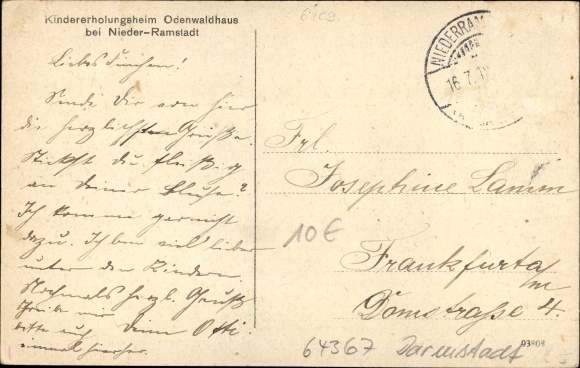 Kindererholungsheim Odenwaldhaus
bei Nieder-Ramstadt
6109
NIEDERRAM
16.7.1
Liebes Finchen!
Sende Dir von hier
die herzlichsten Grüße.
Stickst du fleißig
an deiner Bluse?
Ich komme gar nicht
dazu. Ich bin viel lieber
unter den Kindern
Nochmals herzl. Gruß
Schreibe mir
Deine Otti
bitte auch
einmal hierher.
Frl.
Josephine Lamm
10€
Frankfurt a/m
Domstraße 4.
93808
64367 Darmstadt